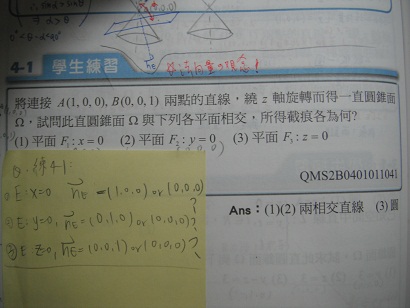 4-1 學生練習
將連接 A(1,0,0), B(0,0,1) 兩點的直線,繞 z 軸旋轉而得一直圓錐面
Ω,試問此直圓錐面 Ω 與下列各平面相交,所得截痕各為何?
(1) 平面 F₁: x=0 (2) 平面 F₂: y=0 (3) 平面 F₃: z=0
QMS2B0401011041
Ans:(1)(2) 兩相交直線 (3) 圓
Q. 練4-1:
E: x=0, nE=(1,0,0) or (0,0,0)?
② E: y=0, nE=(0,1,0) or (0,0,0)?
③ E: z=0, nE=(0,0,1) or (0,0,0)?